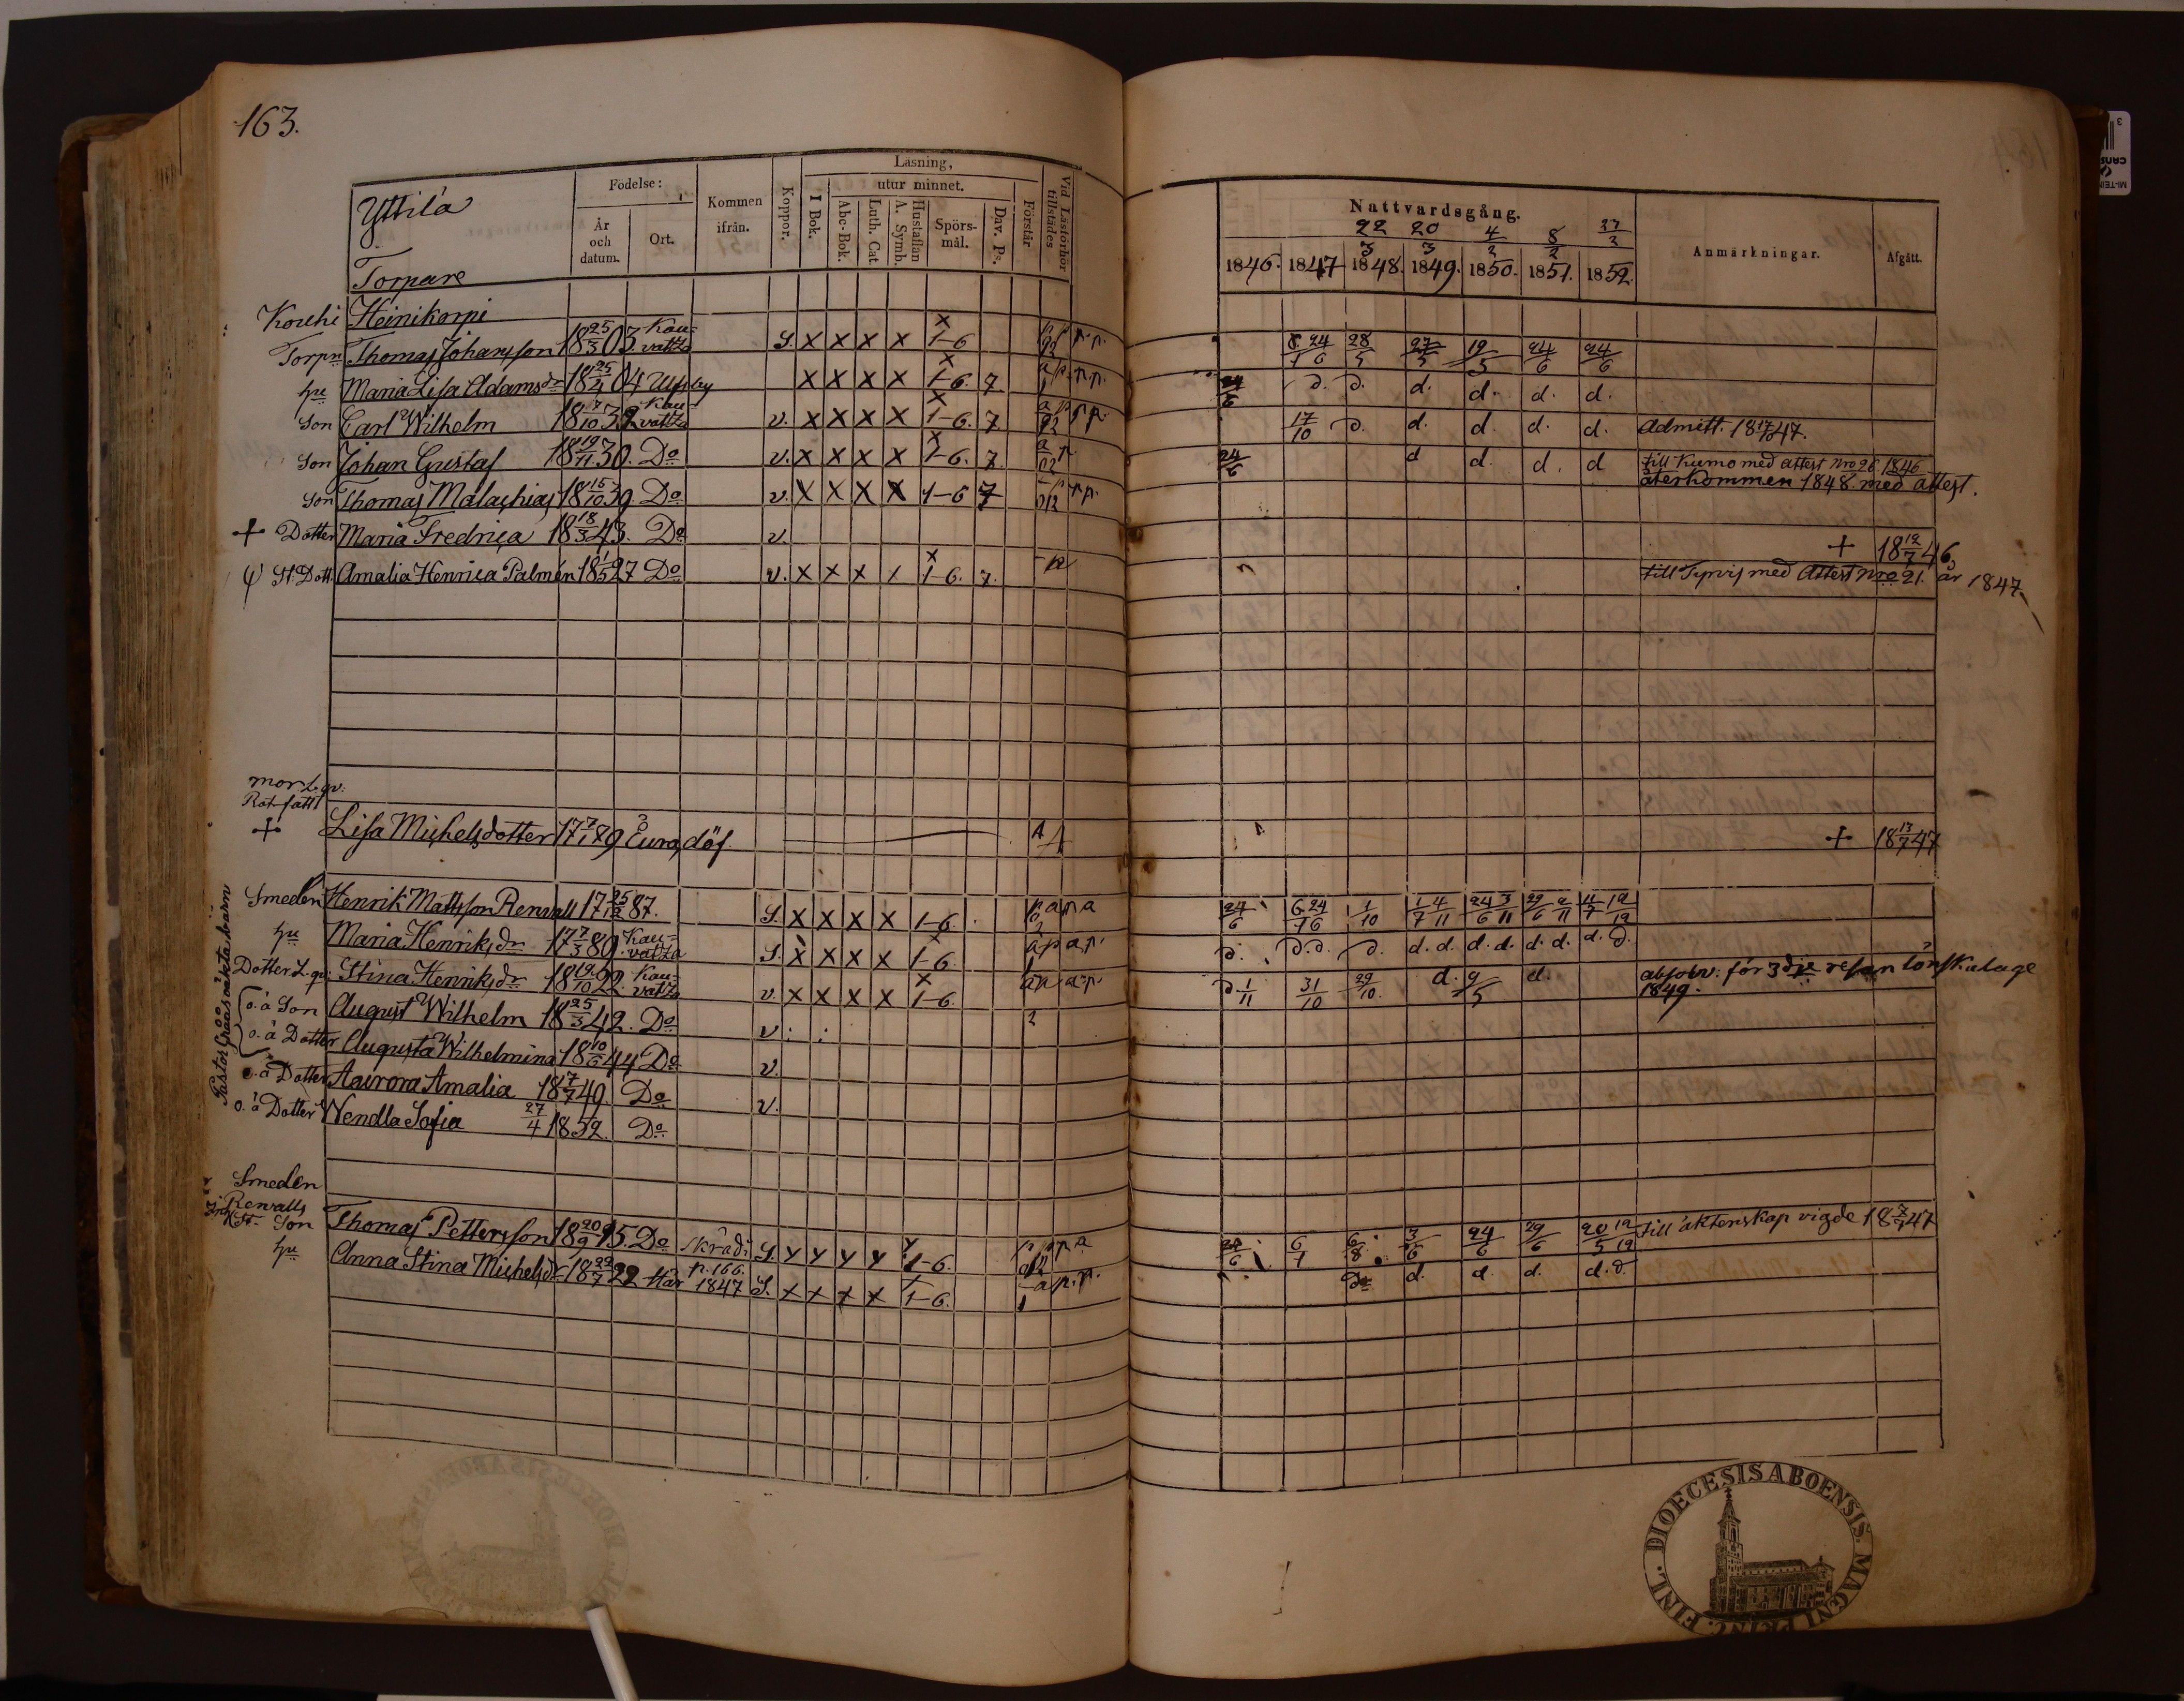 163.
Yttilä
Torpare
Födelse:
År och datum.
Ort.
Kommen ifrån.
Koppor.
Läsning,
I Bok.
utur minnet.
Abc-Bok.
Luth. Cat.
Hustaflan A. Symb.
Spörsmål.
Dav. Ps.
Förstår
Vid Läsförhör tillstädes
Kouhi Heinikorpi
Torpn Thomas Johansson 18 25/3 03 Kauvatza S. x x x x x 1-6
hu Maria Lisa Adamsdr 18 25/4 04 Ulfsby x x x x x 1-6. 7
Son Carl Wilhelm 18 7/10 32 Kauvatza v. x x x x x 1-6. 7
Son Johan Gustaf 18 19/11 30. Do v. x x x x x 1-6. 7.
Son Thomas Malachias 18 15/10 39. Do v. x x x x 1-6 7
+ Dotter Maria Fredrica 18 18/3 43. Do v.
St. Dott. Amalia Henrica Palmén 18 1/5 27 Do v. x x x x x 1-6. 7.
mor L. qv.
Rotfatt
+ Lisa Michelsdotter 17 7/1 89 Eura, döf.
Pastor Graas oäkta barn
Smeden Henrik Mattsson Renvall 17 25/12 87. S. x x x x 1-6. p a p a
hu Maria Henriksdr 17 7/3 89. Kauvatza S. x x x x x 1-6.
Dotter L. qv. Stina Henriksdr 18 19/10 22. Kauvatza v. x x x x x 1-6.
o. ä Son August Wilhelm 18 25/3 42. Do v.
o. ä Dotter Augusta Wilhelmina 18 10/6 44 Do v.
o. ä Dotter Aurora Amalia 18 7/7 49. Do v.
o. ä Dotter Wendla Sofia 27/4 1852. Do
Smeden
Renvalls
St. Son Thomas Pettersson 18 20/9 15. Do
hu Anna Stina Michelsdr 18 22/7 22 Här p. 166. 1847 S. x x x x 1-6.
Nattvardsgång.
22/3 20/3 4/2 8/2 27/2
1846. 1847 1848. 1849. 1850. 1851. 1852.
Anmärkningar.
Afgått.
8/1 24/6 28/5 27/5 19/5 24/6 24/6
24/6 d. d. d. d. d. d.
17/10 d. d. d. d. d. Admitt. 18 17/10 47.
24/6 d d. d. d till Kumo med attest Nro 26. 1846
återkommen 1848. med attest.
+ 18 12/7 46
till Tyrvis med Attest Nro 21. år 1847.
+ 18 13/7 47
24/6 6/1 24/6 1/10 1/7 4/11 24/6 3/11 29/6 2/11 11/7 12/12
d. d. d. d. d. d. d. d. d. d. d. d.
d. 1/11 31/10 29/10 d. 9/5 d. absolv: för 3dje resan lönskaläge
1849.
24/6 6/1 6/8 3/6 24/6 29/6 20/5 12/12 till äktenskap vigde 18 7/7 47
do d. d. d. d. d.
DIOECESIS ABOENSIS. MAGNI PRINC. FINL.